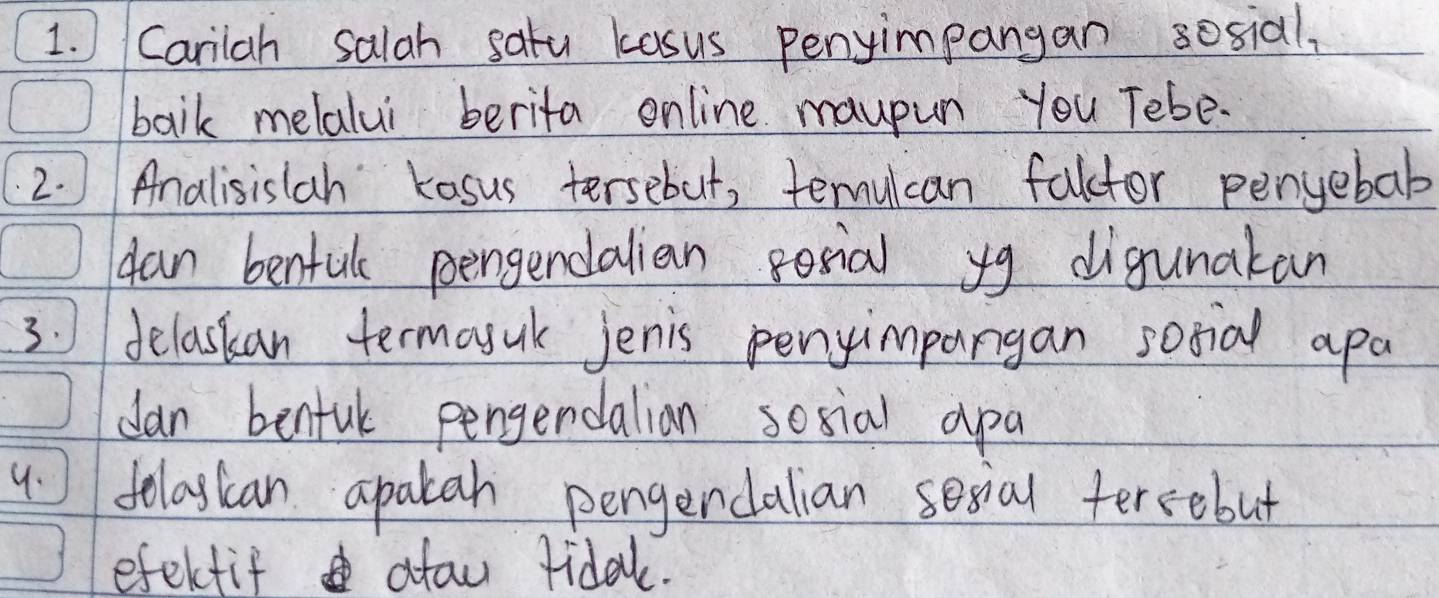 1. Carilah salah satu kasus penyimpangan sosial,
baik melalui berita online maupun You Tebe.
2. Analisislah kasus tersebut, temukan faktor penyebab
dan bentuk pengendalian sosial yg digunakan
3. Jelaskan termasuk jenis penyimpangan sosial apa
dan bentuk pengendalian sosial apa
4. Jelaskan apakah pengendalian sosial tersebut
efektif atau tidak.